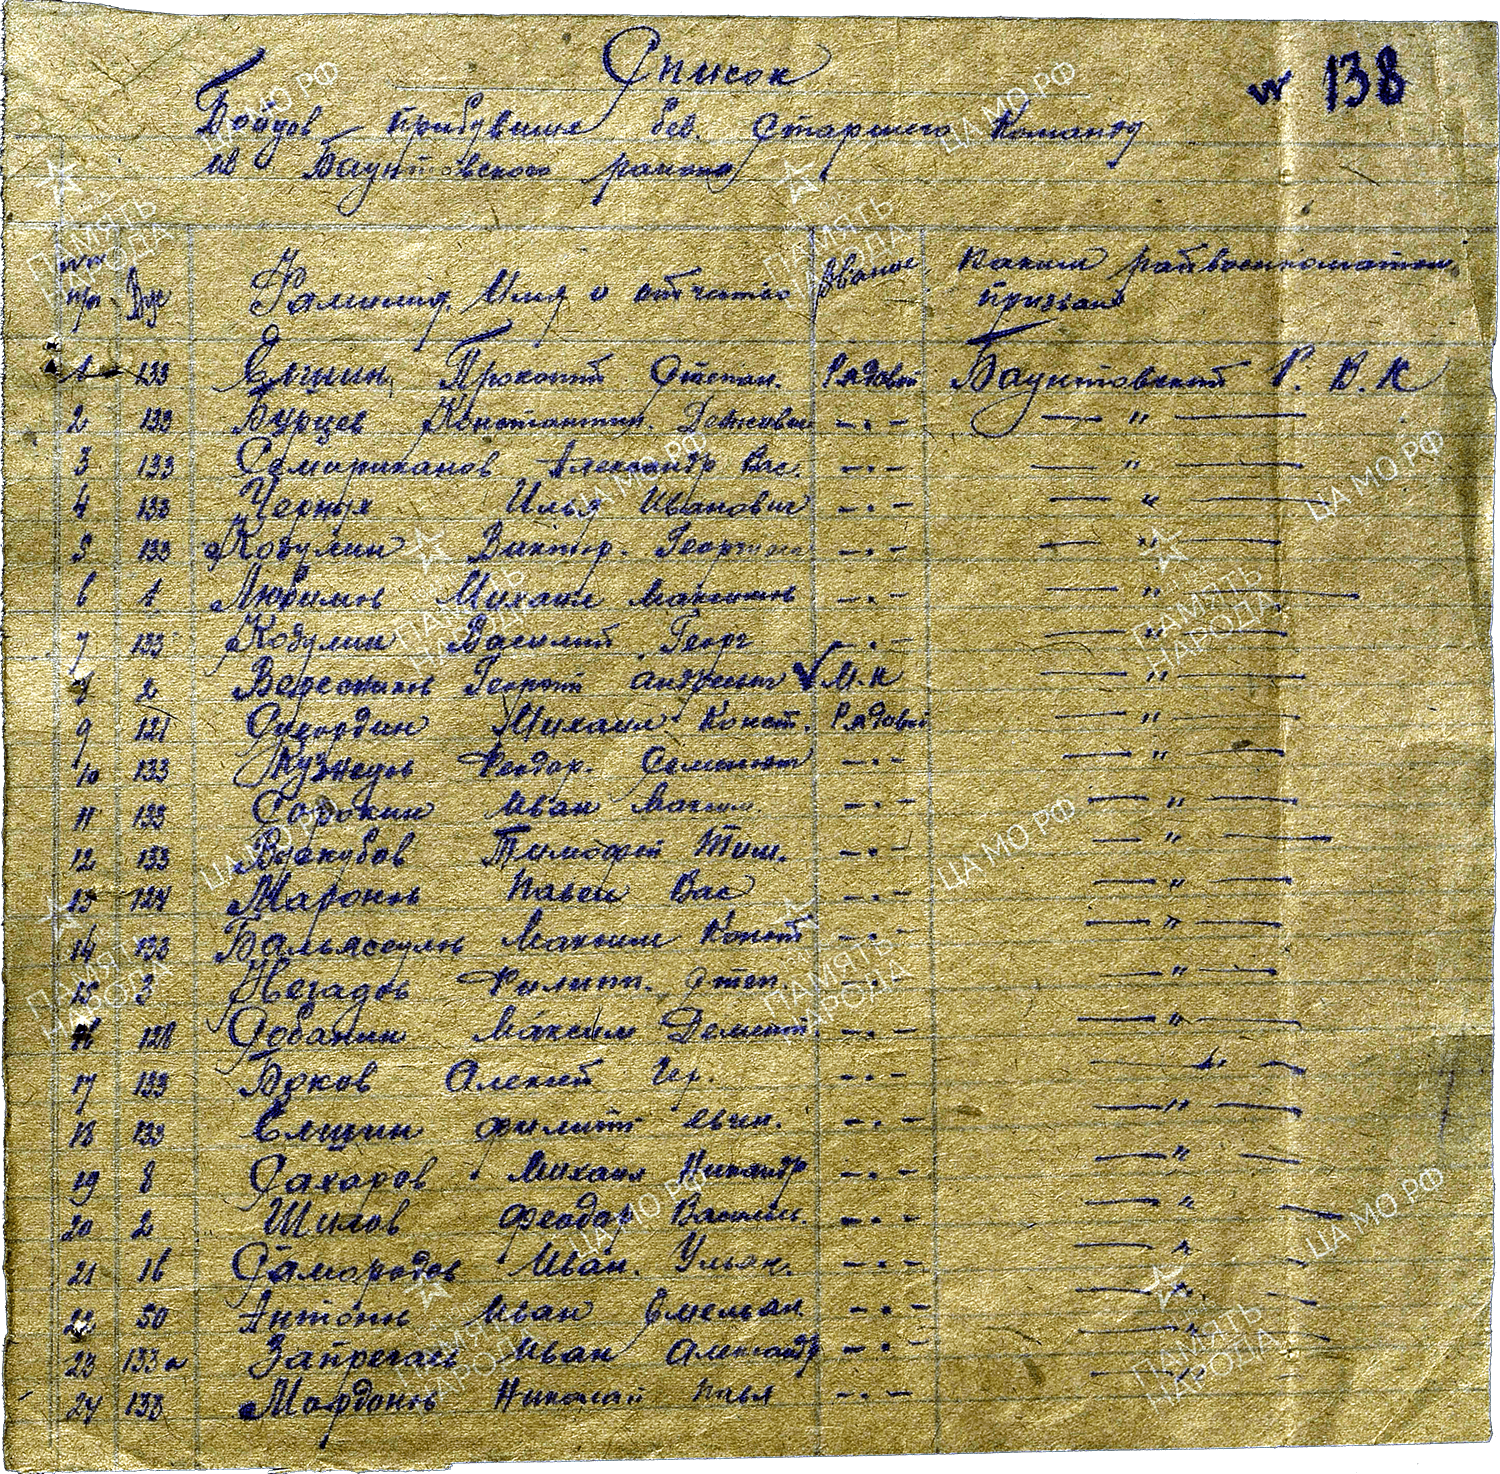 Список
№ 138
Бойцов прибувших без. Старшего Команду
из Баунтовского района
№№ п/п Вус Фамилия. Имя и отчество Звание Каким райвоенкоматом призван
1 133 Елшин, Прокопий Степан. Рядовой Баунтовский Р. В. К
2 133 Бурцев Константин. —.— —"—
3 133 Александр Вас. —.— —"—
4 133 Черных Илья Иванович —.— —"—
5 133 Кобулин Виктор. Георгиев —.— —"—
6 1 Любимов Михаил Максимов —.— —"—
7 133 Кобулин Василий Георг —.— —"—
8 2 Георгий Андреевич М.к —"—
9 121 Михаил Конст. Рядовой —"—
10 133 Кузнецов Феодор. —.— —"—
11 133 Сорокин Иван Максим. —.— —"—
12 133 Тимофей Тим. —.— —"—
13 124 Павел Вас —.— —"—
14 133 Максим Конст —.— —"—
15 3 Филипп. Степ. —.— —"—
16 128 Максим Демент —.— —"—
17 133 Боков Алексей Гер. —.— —"—
18 133 Елшин Филипп Евген. —.— —"—
19 8 Сахаров Михаил Никандр —.— —"—
20 2 Шилов Феодор Васил. —.— —"—
21 16 Самородов Иван. Ульян. —.— —"—
22 50 Антонов Иван Емельян. —.— —"—
23 133а Запрегаев Иван Александр —.— —"—
24 133 Мордонов Николай Павл —.— —"—
ПАМЯТЬ НАРОДА
ЦА МО РФ